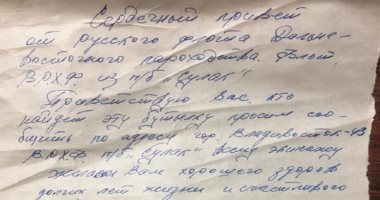 Сердечный привет
от русского флота Дальне-
восточного пароходства. Флот.
В.Р.Х.Ф. из п/б „Сулак“
Приветствую Вас, кто
найдет эту бутылку просим соо-
бщить по адресу гор. Владивосток-43
В.Р.Х.Ф. п/б „Сулак“ всему экипажу
желаем Вам хорошего здоров
долгих лет жизни и счастливого